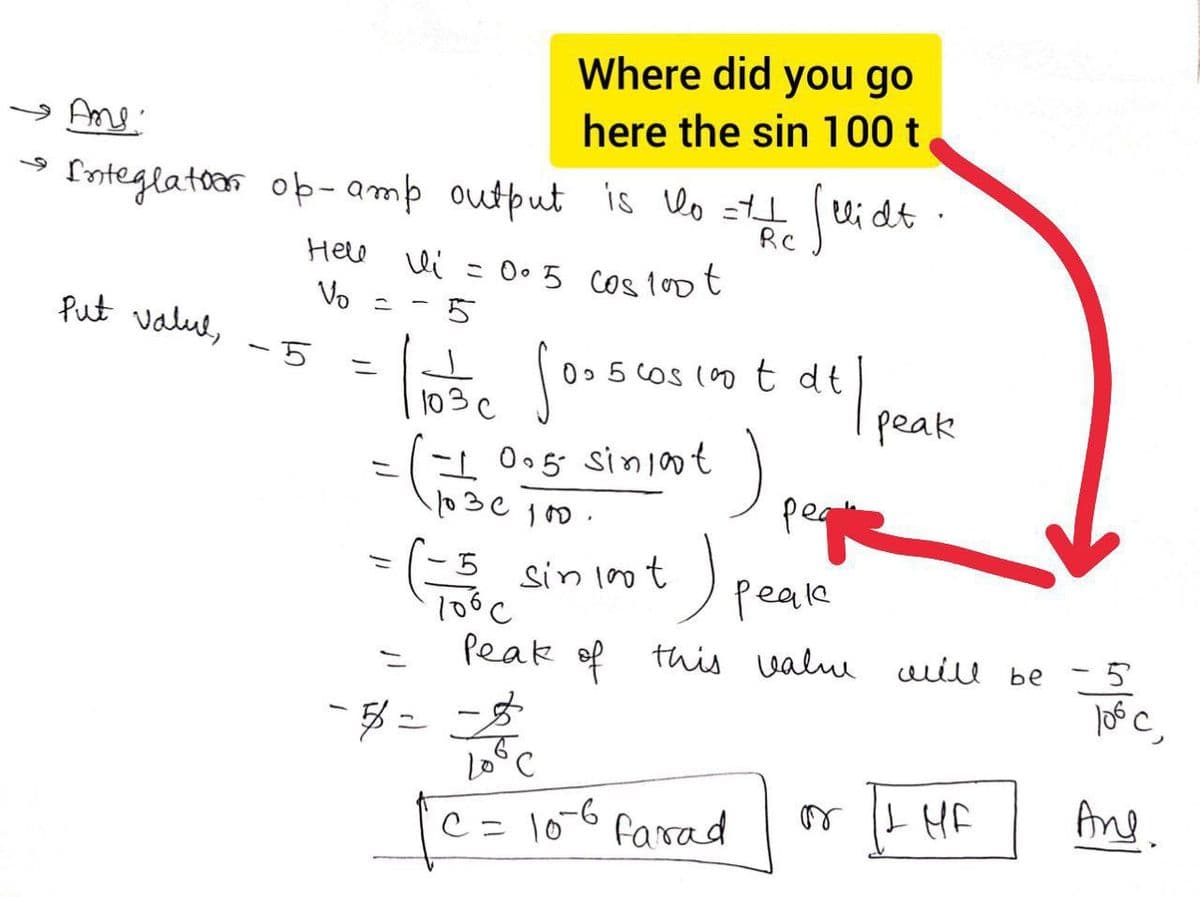 Where did you go
here the sin 100 t
→ Ans:
→ Integlator op-amp output is vo = -1/RC ∫ vi dt.
Here vi = 0.5 cos 100 t
Vo = - 5
Put value, - 5 = | 1/10³C ∫ 0.5 cos 100 t dt | peak
= ( -1/10³C 0.5 sin 100t / 100 . ) peak
= ( -5/10⁶C sin 100 t ) peak
= Peak of this value will be - 5/10⁶C,
- 5 = -5/10⁶C
C = 10⁻⁶ farad or 1 μF Ans.